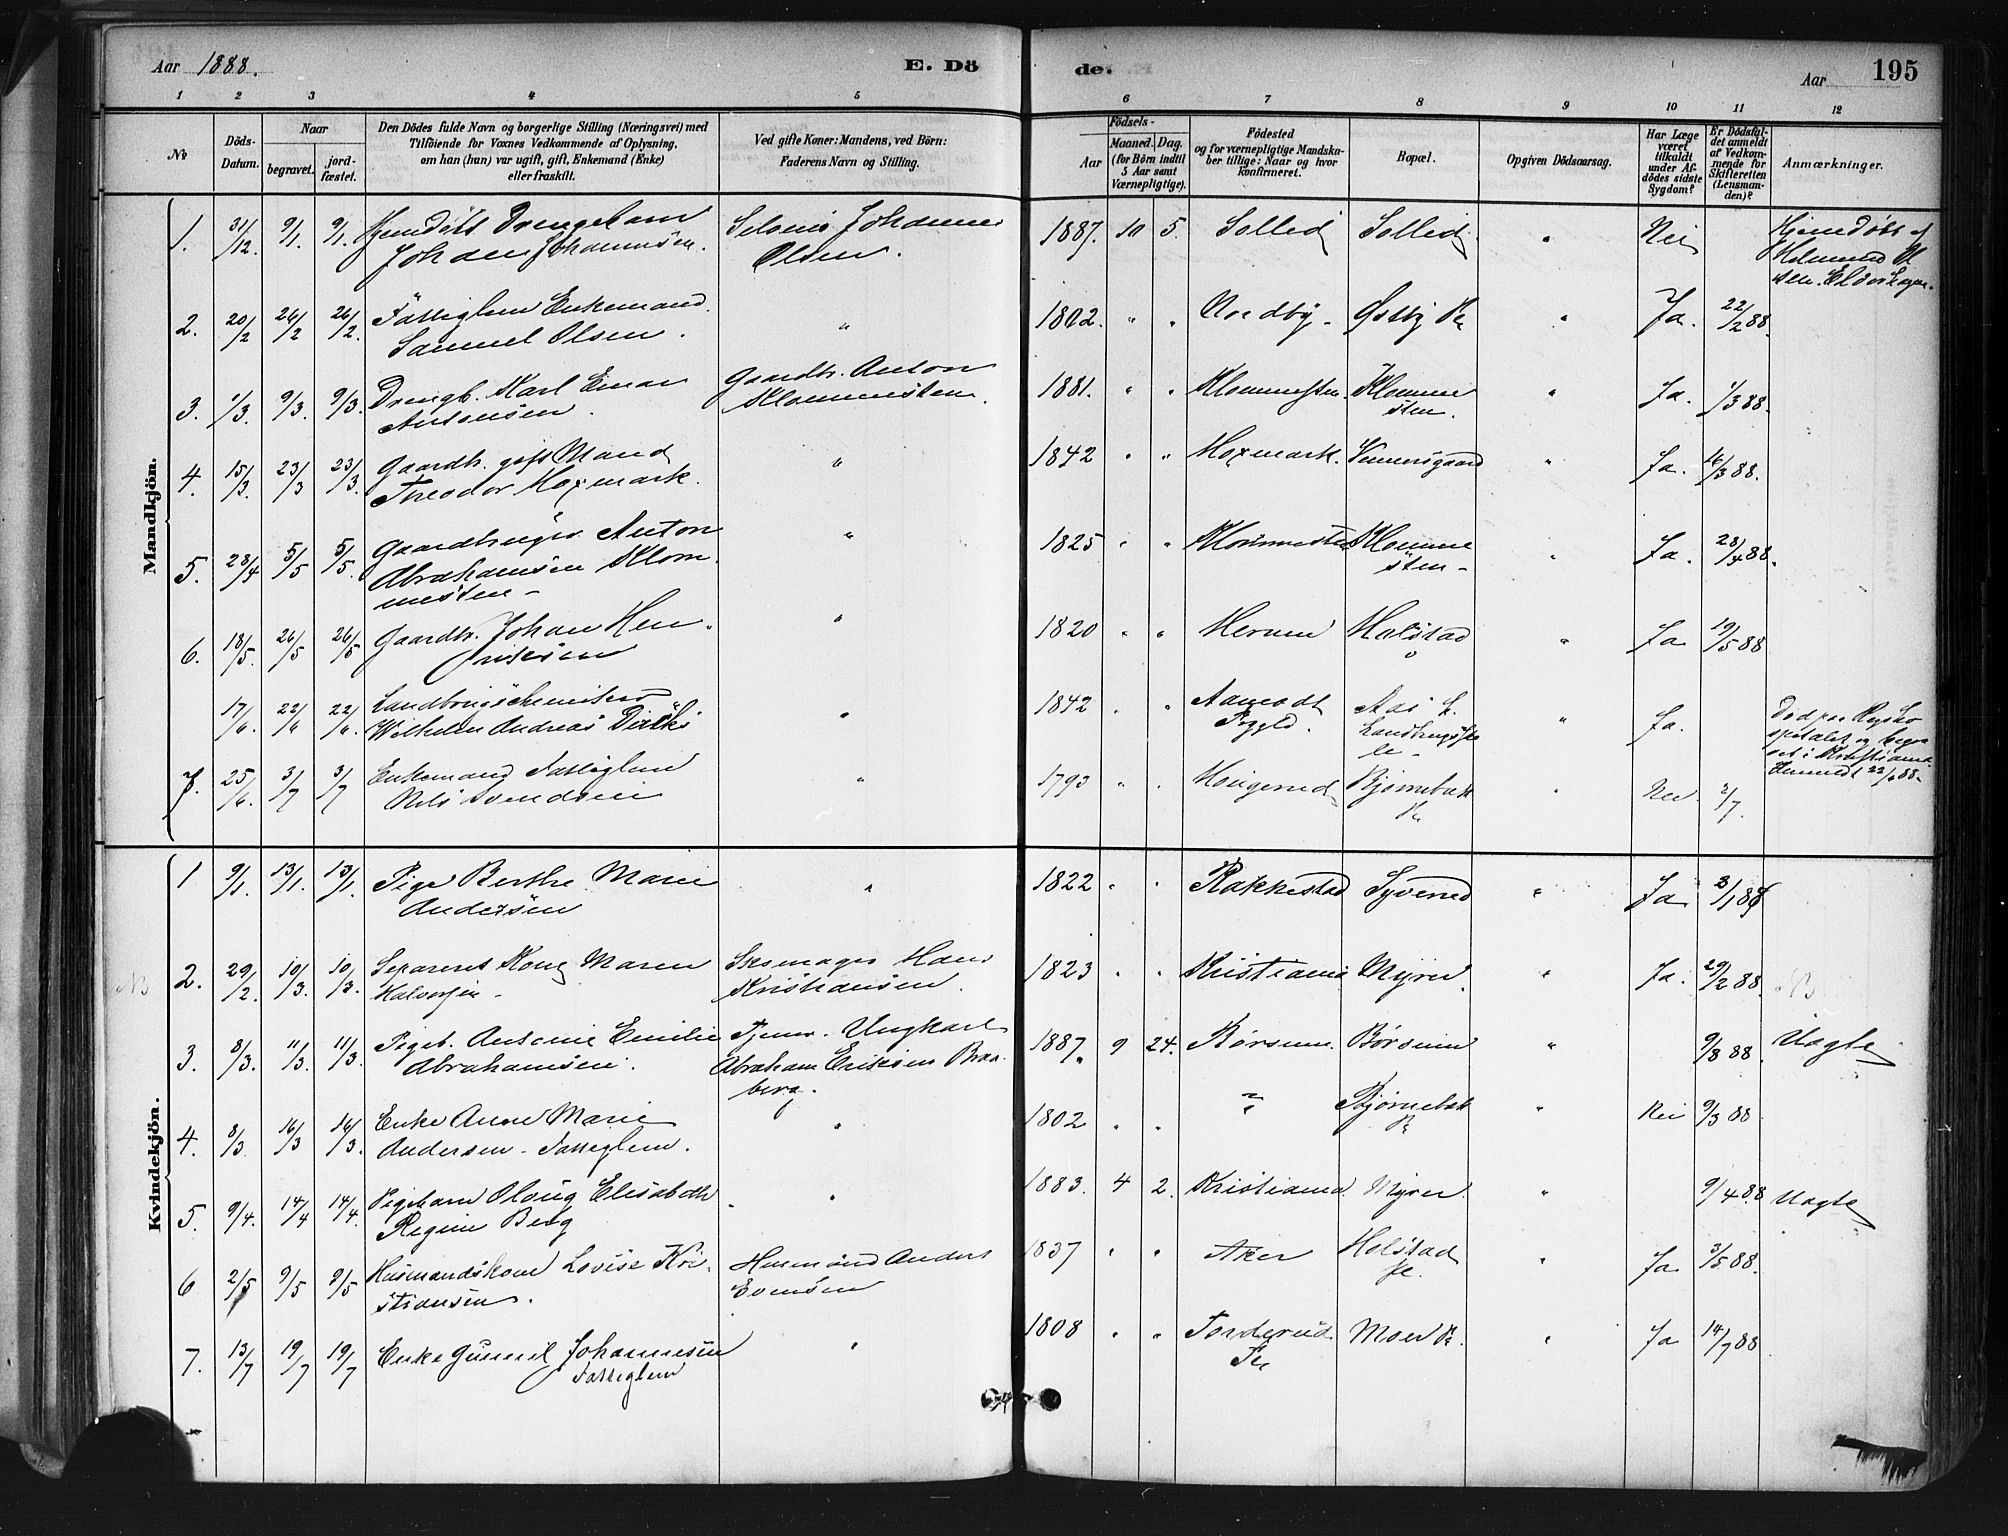 Aar 1888. E. Dö de. Aar 195
1 2 3 4 5 6 7 8 9 10 11 12
No
Döds-Datum.
Naar
begravet.
jord-fæstet.
Den Dödes fulde Navn og borgerlige Stilling (Næringsvei) med
Tilföiende for Voxnes Vedkommende af Oplysning,
om han (hun) var ugift, gift, Enkemand (Enke)
eller fraskilt.
Ved gifte Koner: Mandens, ved Börn:
Faderens Navn og Stilling.
Födsels-
Aar
Maaned. Dag.
(for Börn indtil
5 Aar samt
Værnepligtige).
Födested
og for værnepligtige Mandska-
ber tillige: Naar og hvor
konfirmeret.
Bopæl.
Opgiven Dödsaarsag.
Har Læge
været
tilkaldt
under Af-
dödes sidste
Sygdom?
Er Dödsfal-
det anmeldt
af Vedkom-
mende for
Skifteretten
(Lensman-
den)?
Anmærkninger.
Mandkjön.
1. 31/12. 9/1. 9/1. Hjemdöbt Drengebarn Johannes 1887. 10 5. Sollid Sollid " Nei Hjemdöbt af
Johan Johannesen. Olsen.
2. 20/2 26/2 26/2. Fattiglem Enkemand " 1802. " " Nordby. Østby " Ja. 22/2 88.
Samuel Olsen.
3. 1/3. 9/3. 9/3. Drengb. Karl Einar Gaardbr. Anton 1881. " " Klommesten. Klomme " Ja. 1/3 88.
Antonsen. Klommesten. sten.
4. 15/3. 23/3 23/3. Gaardbr. gift Mand " 1842 " " Moxmark. " Ja. 16/3 88.
Theodor Moxmark.
5. 28/4 5/5 5/5. Gaardbruger Anton " 1825 " " Klommesten Klomme " Ja. 28/4 88.
Abrahamsen Klom- sten-
mesten-
6. 18/5. 26/5 26/5 Gaardbr. Johan Hen- " 1820 " " Holstad " Ja 19/5 88
riksen
17/6. 22/6 22/6. Landbrugschemiker " 1842 " " Aamodt Aas L. " Ja. Död paa Rigsho
Wilhelm Andreas Dircks Rygge. Landbrugssko spitalet og begra
le - vet i Kristiania
22/6 88.
7. 25/6. 3/7 3/7 Enkemand Fattiglem " 1793 " " Bjørnebæk " Nei. 2/7.
Nils Svendsen
Kvindekjön.
1 9/1. 13/1. 13/1. Pige Berthe Marie " 1822 " " Rakkestad Syverud " Ja
Andersen
2. 29/2. 10/3. 10/3. Separeret Kone Maren Skomager Hans 1823 " " Kristiania Myrer. " Ja. 29/2 88.
Halvorsen - Kristiansen.
3. 8/3. 11/3. 11/3. Pigeb. Antonie Emilie Tjener. Ungkarl 1887. 9 24. Børsum. Børsum " 9/8 88. Uægte
Abrahamsen. Abraham Eriksen Braa
berg.
4. 8/3 16/3 16/3. Enke Anne Marie " 1802 " " " Bjørnebæk " Nei 9/3 88
Andersen - Fattiglem.
5. 9/4. 14/4 14/4. Pigebarn Olaug Elisabeth " 1883. 4 2. Kristiania. Myrer. " 9/4 88 Uægte
Regine Berg
6 2/5 9/5 9/5 Husmandskone Lovise Kri- Husmand Anders 1837 " " Aker Holstad " Ja 3/5 88.
stiansen. Evensen
7. 13/7 19/7 19/7 Enke Gunnil Johannesen " 1808 " " Tonderud Moer " Ja 14/7 88
Fattiglem